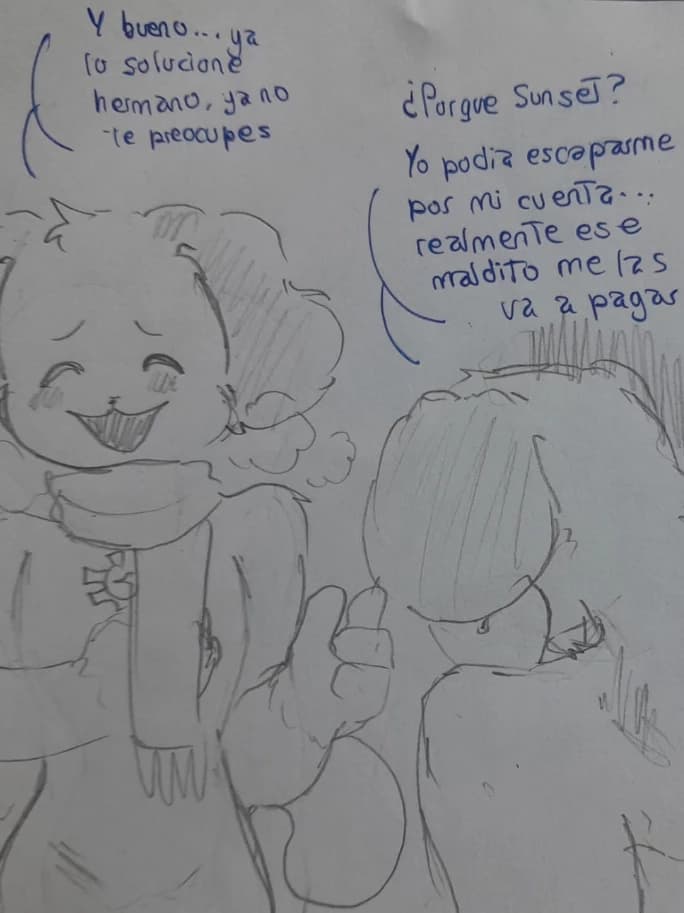 Y bueno... ya
lo solucione
hermano, ya no
te preocupes
¿Porque Sunset?
Yo podia escaparme
por mi cuenta...
realmente ese
maldito me las
va a pagar